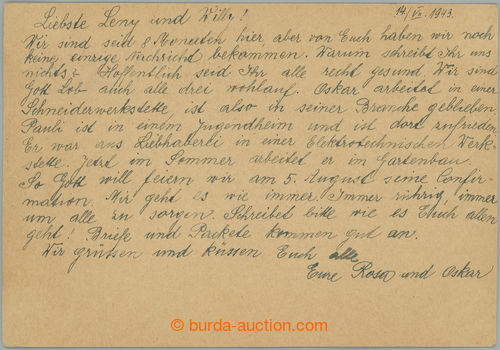 14/VI. 1943.
Liebste Leny und Willy!
Wir sind seid 8 Moneeteh hier, aber von Euch haben wir noch
keine einzige Nachricht bekommen. Warum schreibt Ihr uns
nichts? Hoffentlich seid Ihr alle recht gesund. Wir sind
Gott Lob auch alle drei wohlauf. Oskar arbeitet in einer
Schneiderwerkstette ist also in seiner Branche geblieben.
Pauli ist in einem Jugendheim und ist dort zufrieden.
Er war aus Liebhaberli in einer Elektrotechnischen Werk-
stette. Jetzt im Sommer arbeitet er im Gartenbau.
So Gott will feiern wir am 5. August seine Confir-
mation. Mir geht es wie immer. Immer rührig, immer
um alle zu sorgen. Schreibet bitte wie es Euch allen
geht! Briefe und Packete kommen gut an.
Wir grüssen und küssen Euch alle
Eure Rosa und Oskar
© burda-auction.com